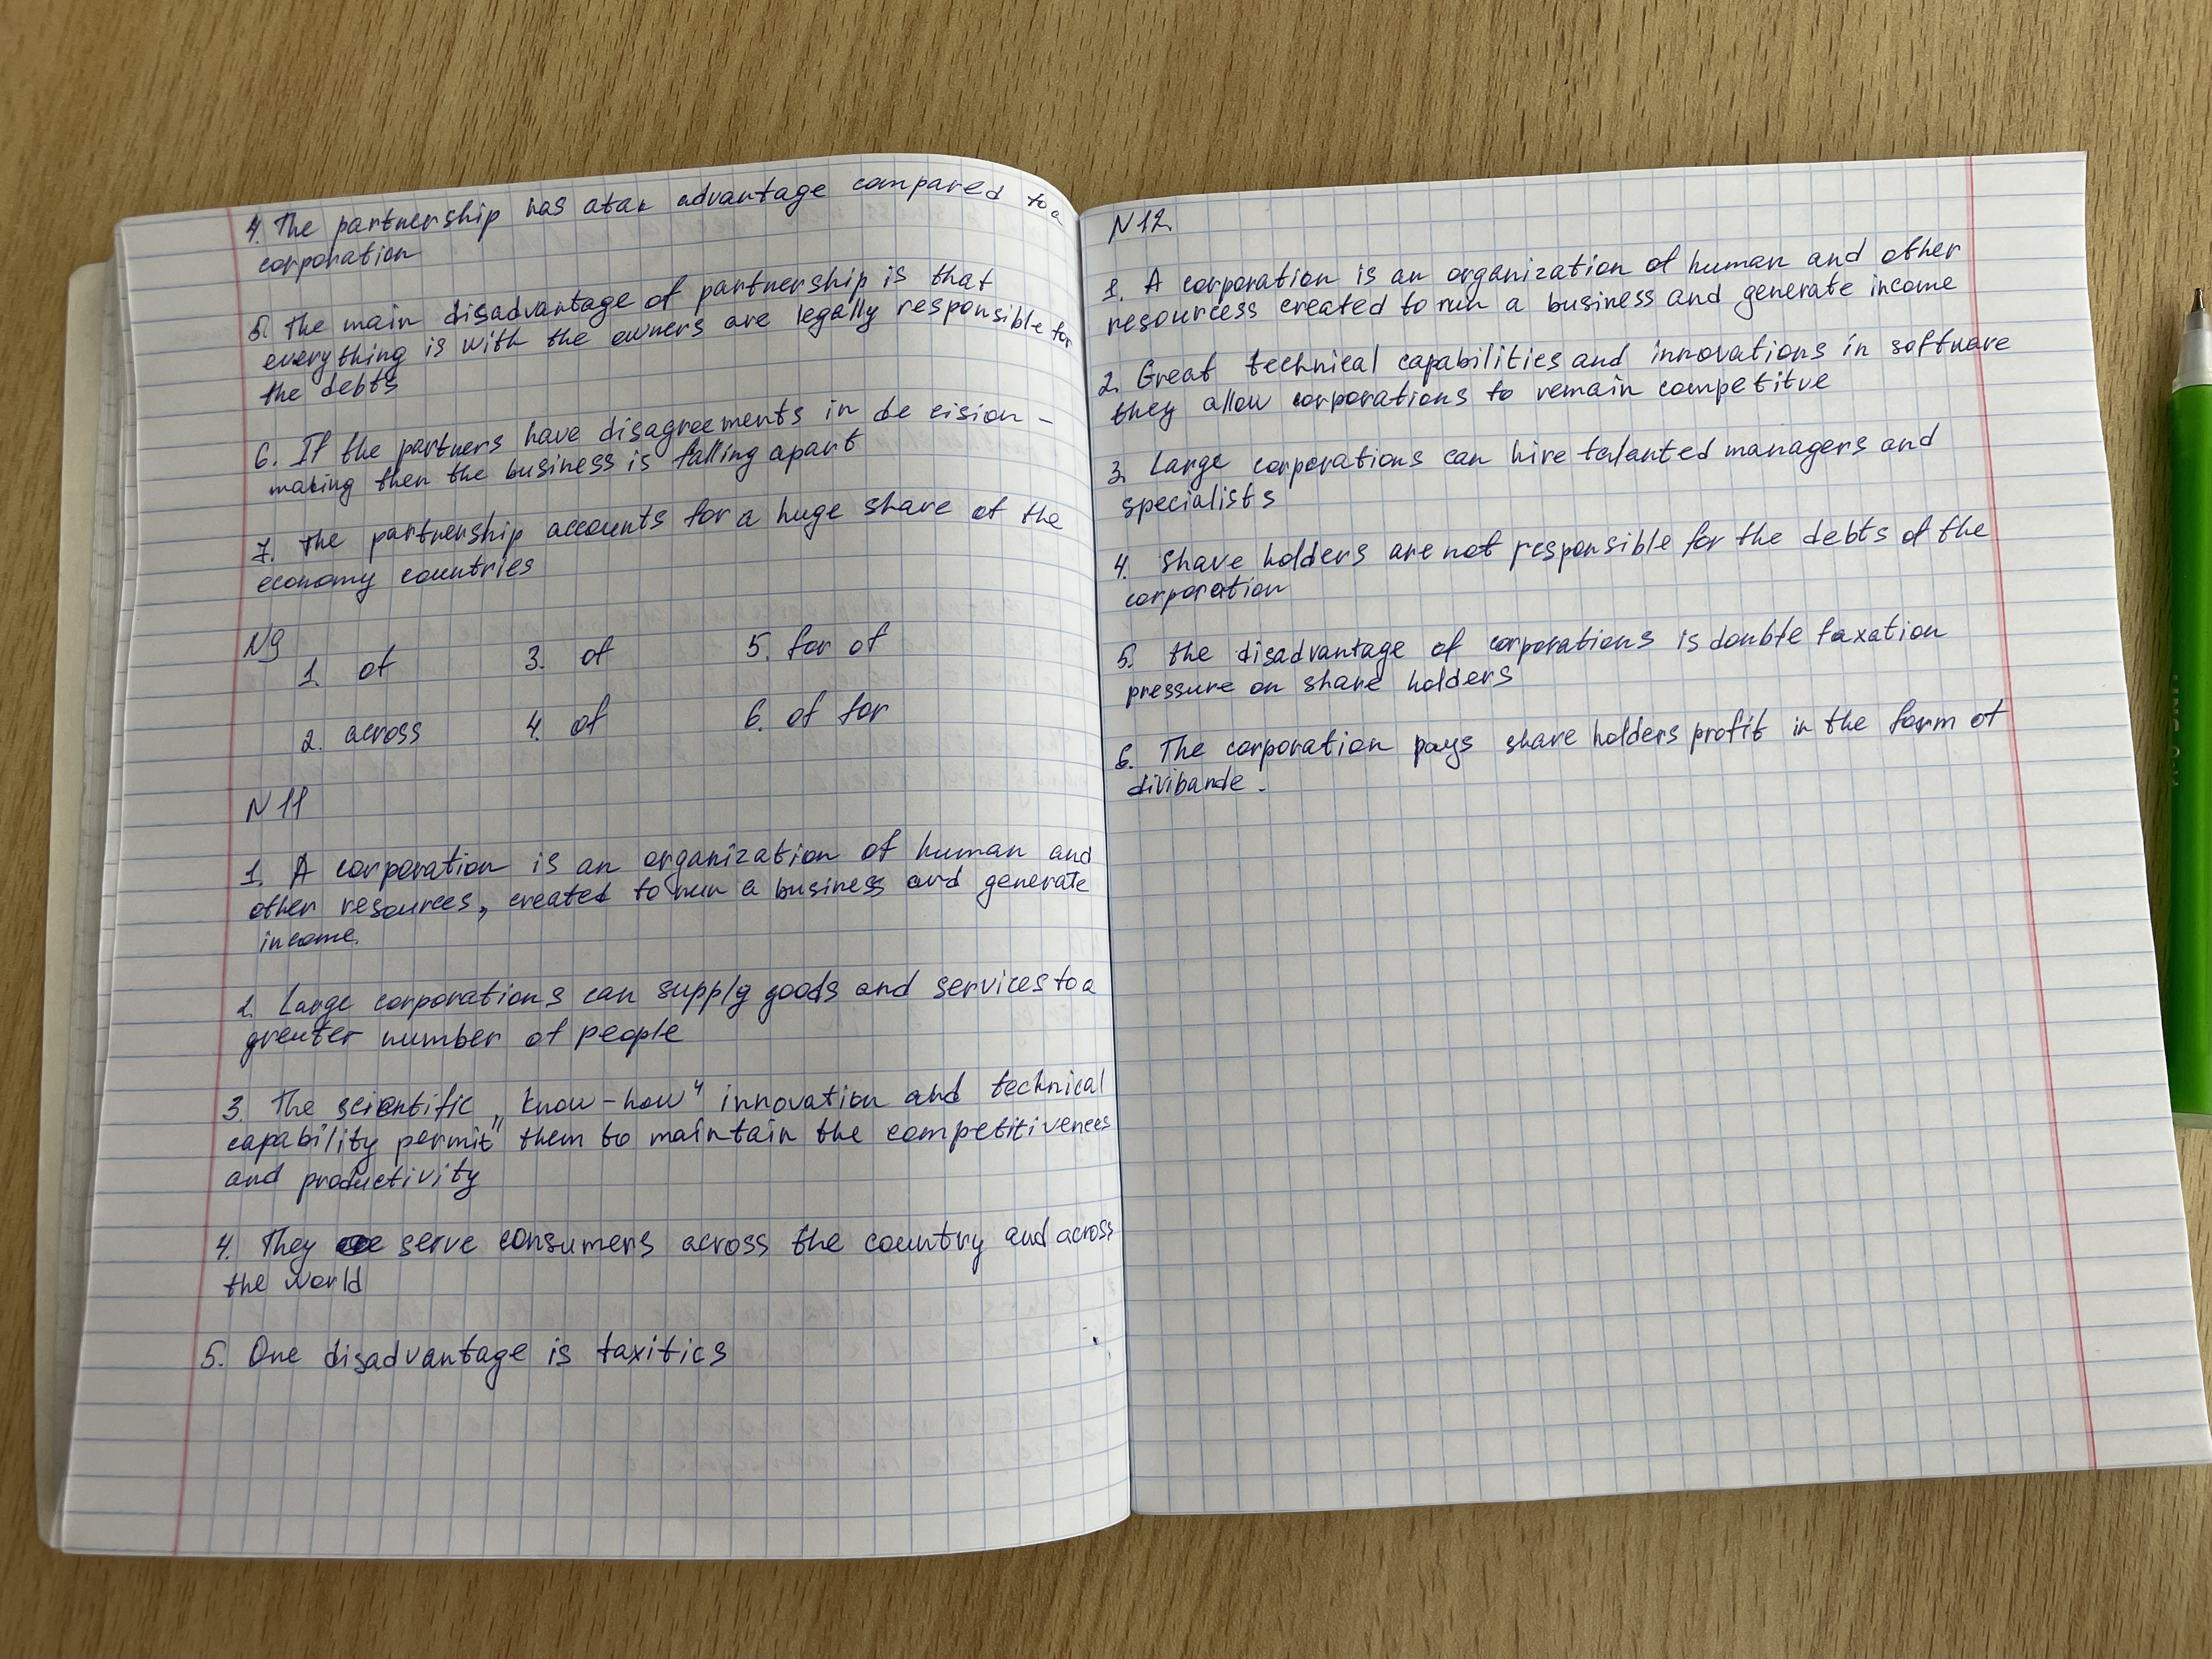 4. The partnership has atax advantage compared to a
corporation
5. The main disadvantage of partnership is that
everything is with the owners are legally responsible for
the debts
6. If the partners have disagreements in de cision -
making then the business is falling apart
7. The partnership accounts for a huge share of the
economy countries
N9
1. of 3. of 5. for of
2. across 4. of 6. of for
N 11
1. A corporation is an organization of human and
other resources, created to run a business and generate
income.
2. Large corporations can supply goods and services to a
greater number of people
3. The scientific „know-how" innovation and technical
capability permit" them to maintain the competitivenees
and productivity
4. They serve consumers across the country and across
the world
5. One disadvantage is taxitics
N 12.
1. A corporation is an organization of human and other
resourcess created to run a business and generate income
2. Great technical capabilities and innovations in software
they allow corporations to remain competitve
3. Large corporations can hire talanted managers and
specialists
4. Share holders are not responsible for the debts of the
corporation
5. the disadvantage of corporations is double taxation
pressure on share holders
6. The corporation pays share holders profit in the form of
divibande.